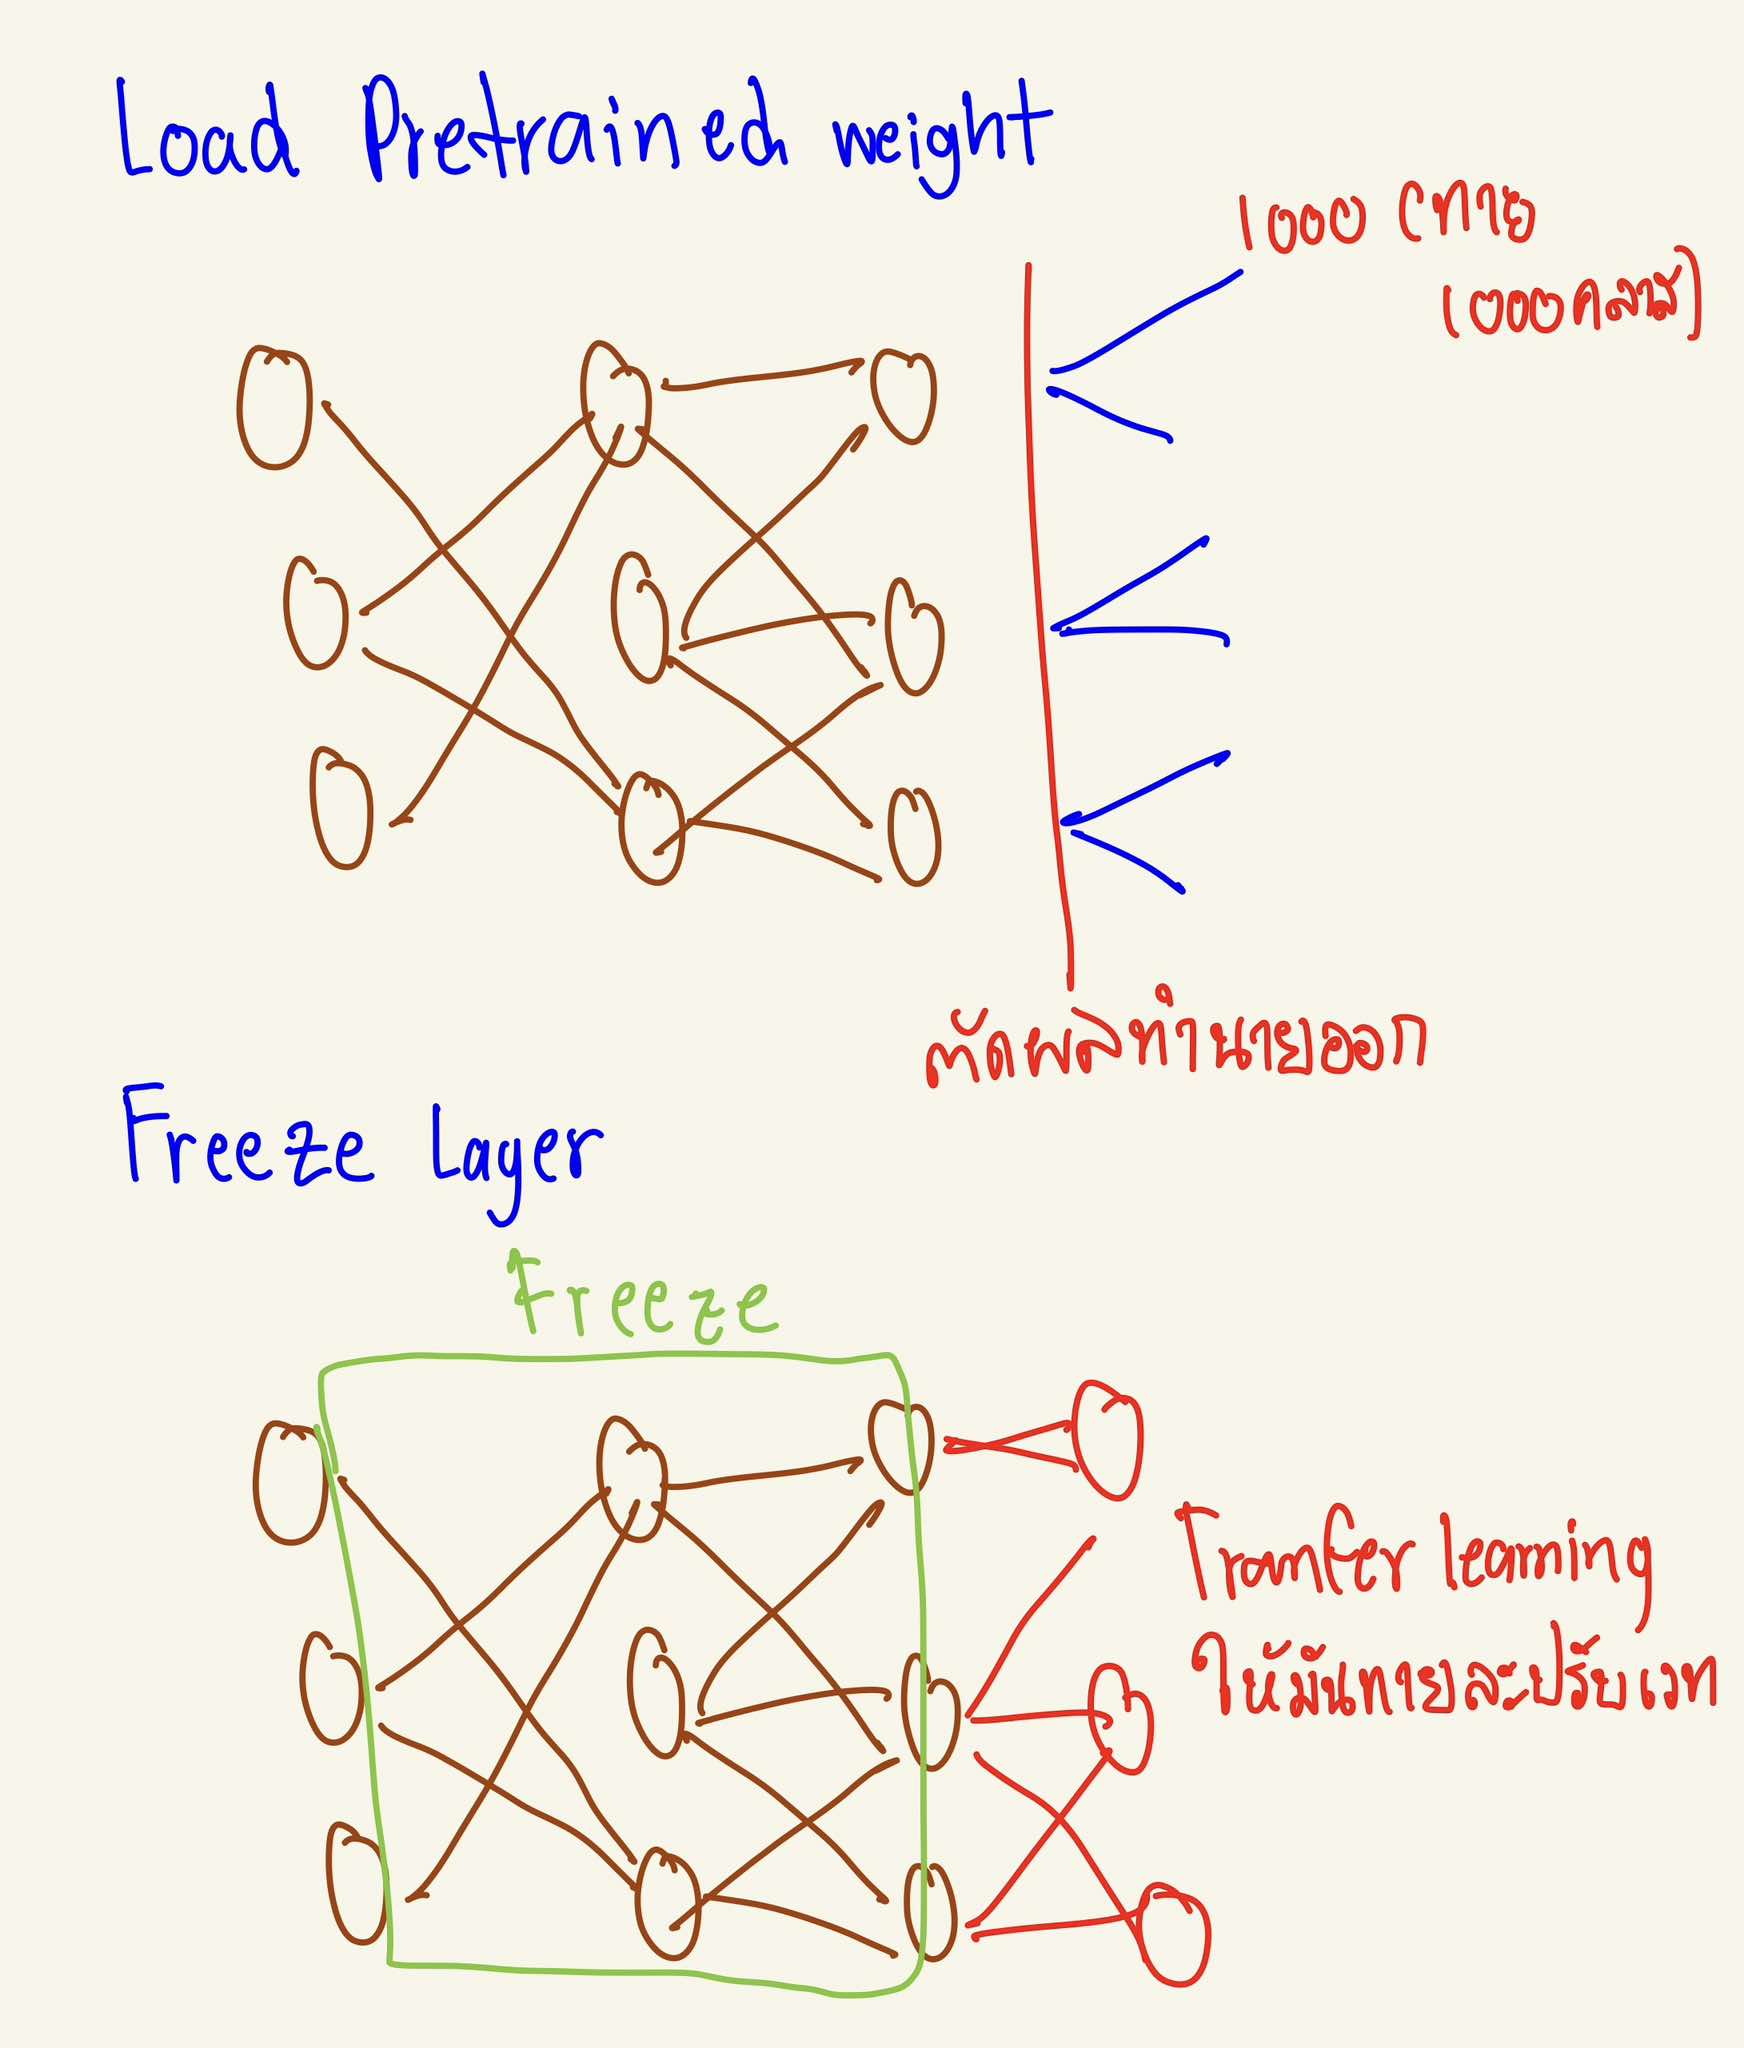 Load Pretrained weight
1000 (ทาย
1000คลาส)
ตัดผลทำนายออก
Freeze Layer
Freeze
Tranfer learning
ให้มันทายละปรับเวท